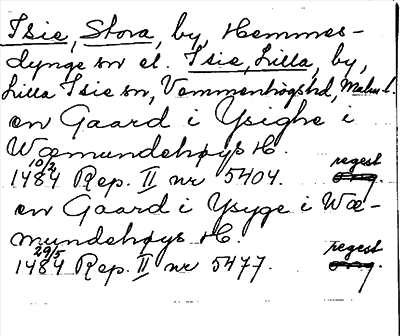 Isie, Stora, by, Hemmes-
dynge sn el. Isie, Lilla, by,
Lilla Isie sn, Vemmenhögshd, Malm. l.
en Gaard i Ysighe i
Wæmundehøys H.
10/2 1484 Rep. II nr 5404. regest
en Gaard i Ysyge i Wæ-
mundehøys H.
29/5 1484 Rep. II nr 5477. regest